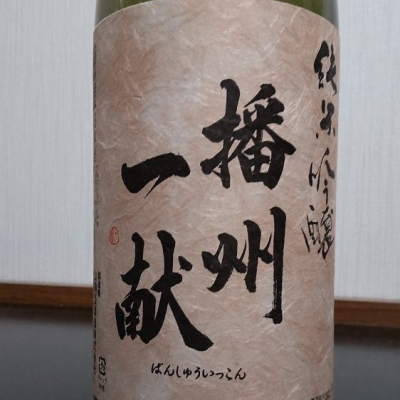 純米吟醸
播州
一献
ばんしゅういっこん